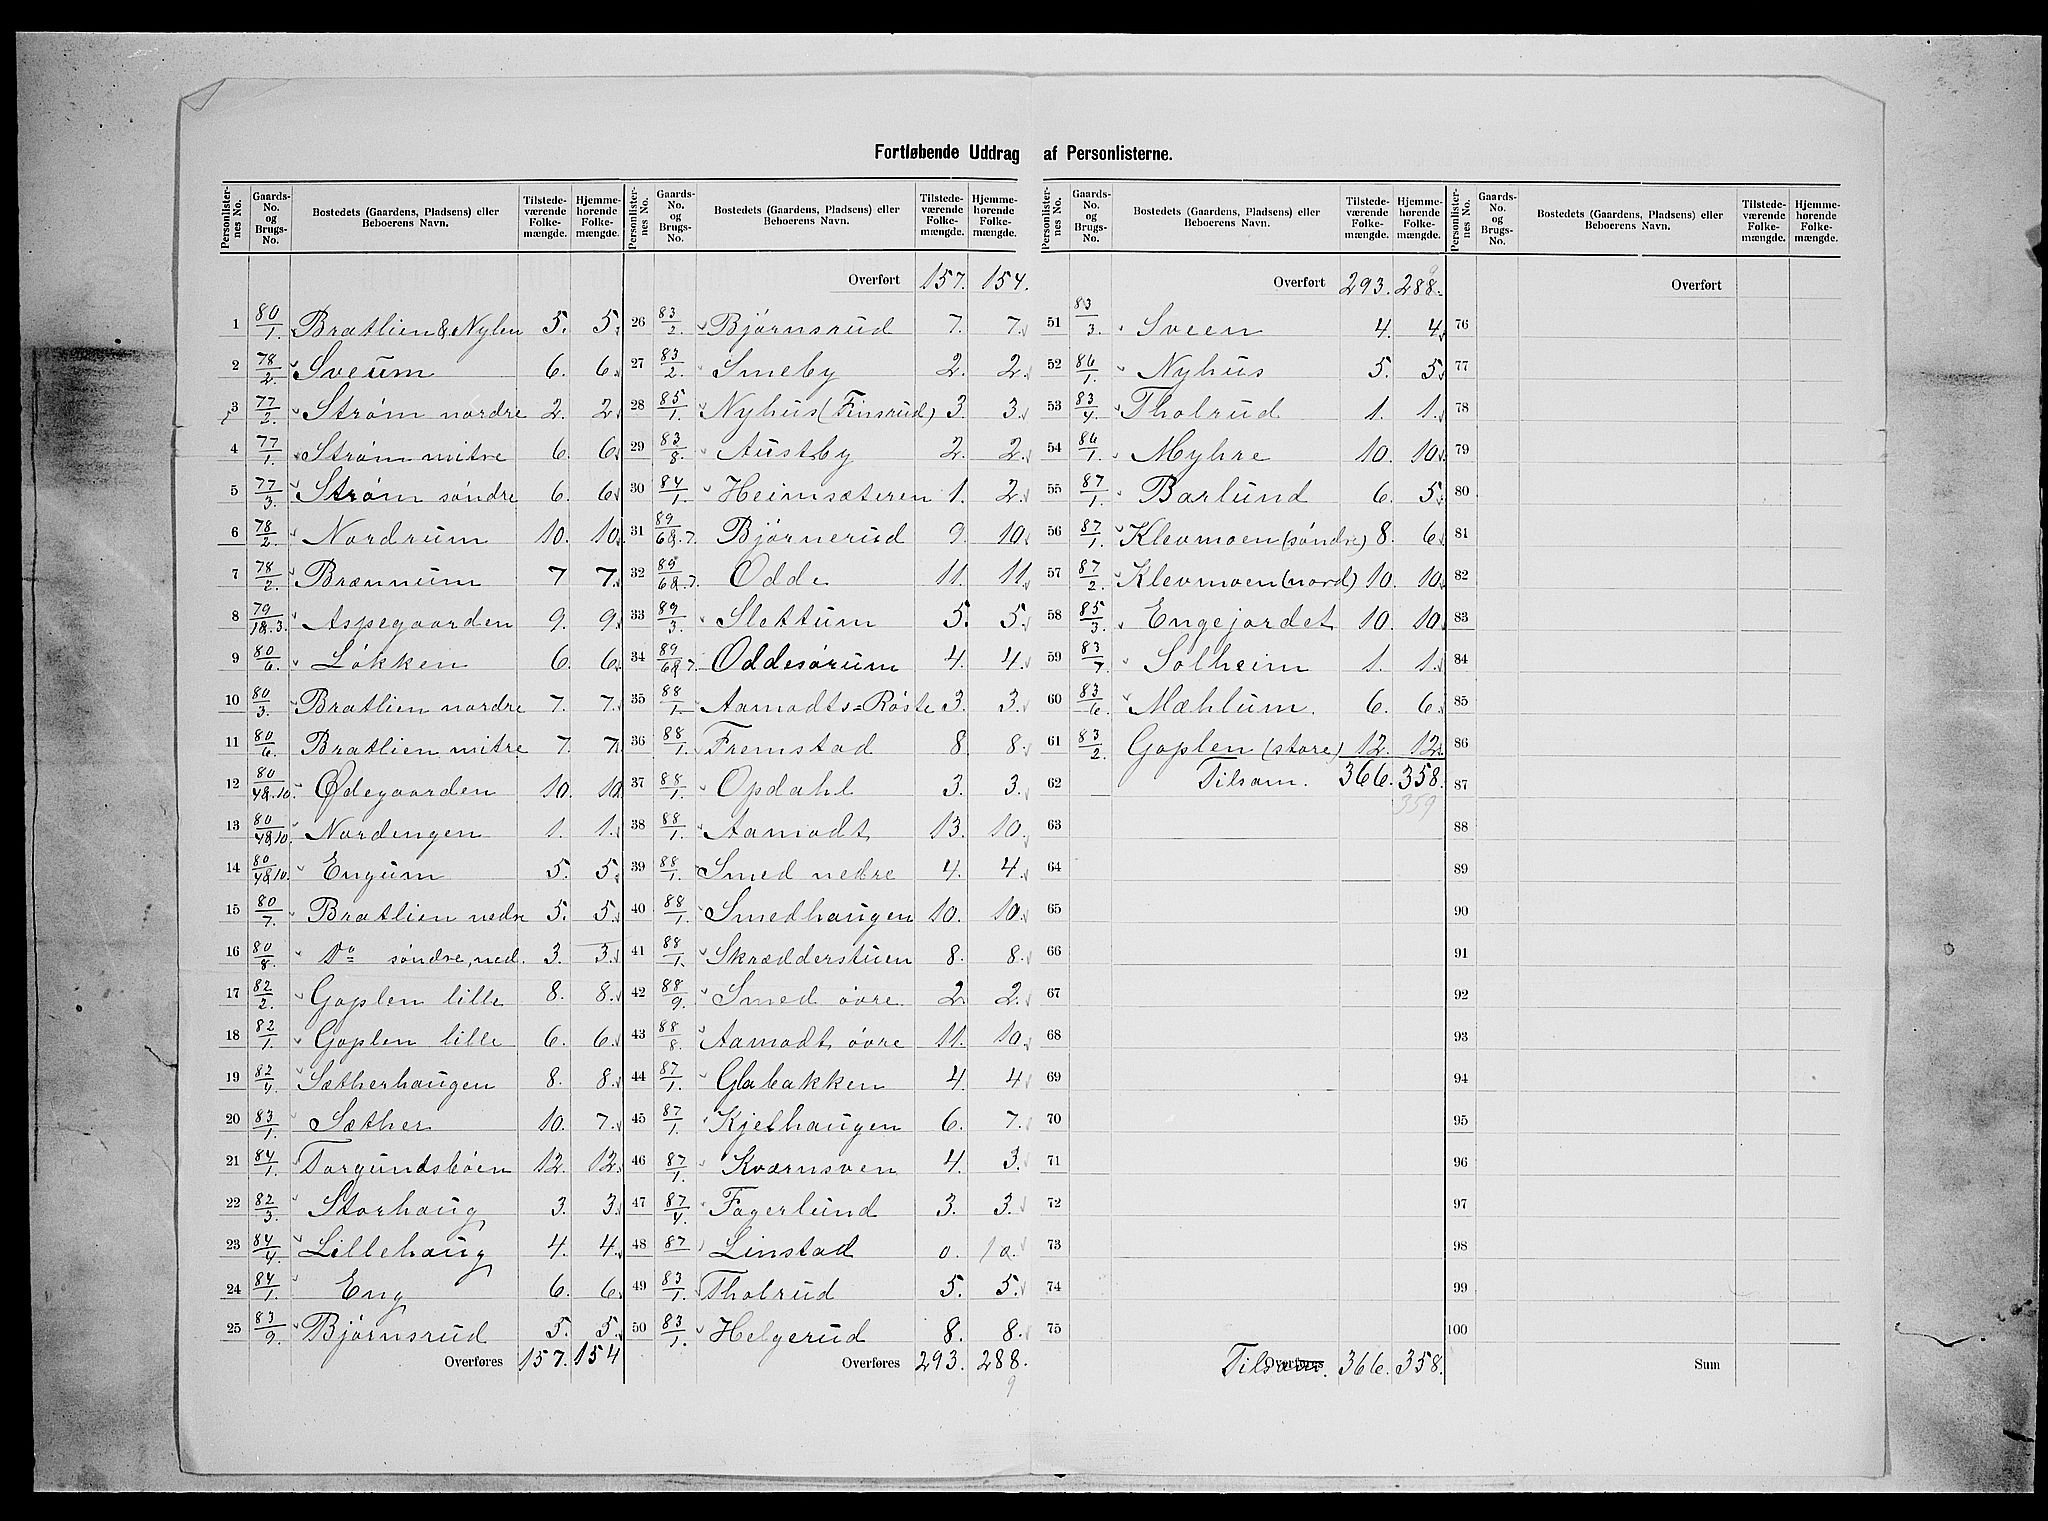 Fortløbende Uddrag af Personlisterne.
Personlister-nes No. | Gaards-No. og Brugs-No. | Bostedets (Gaardens, Pladsens) eller Beboerens Navn. | Tilstede-værende Folke-mængde. | Hjemme-hørende Folke-mængde.
1 80/1. Bratlien & Nylen 5. 5.
2 78/2 Sveum 6. 6.
3 77/2. Strøm nordre 2. 2.
4 77/1. Strøm mitre 6. 6.
5 77/3. Strøm søndre 6. 6.
6 78/2. Nordrum 10. 10.
7 78/2 Brænnum 7 7.
8 79/1&.3. Aspegaarden 9. 9.
9 80/6. Løkken 6. 6.
10 80/3. Bratlien nordre 7. 7.
11 80/6. Bratlien mitre 7. 7.
12 80/4&.10. Ødegaarden 10. 10.
13 80/4&10. Nordengen 1. 1.
14 80/4&10. Engum 5. 5.
15 80/7. Bratlien nedre 5. 5.
16 80/8. Do søndre, ned. 3. 3.
17 82/2. Goplen lille 8. 8.
18 82/1. Goplen lille 6. 6.
19 82/4. Sætherhaugen 8. 8.
20 83/1. Sæther 10. 7.
21 84/1. Torgundsbøen 12. 12.
22 82/3. Storhaug 3. 3.
23 84/4. Lillehaug 4. 4.
24 84/1. Eng 6. 6.
25 83/9. Bjørnsrud 5. 5.
Overføres 157. 154
Personlister-nes No. | Gaards-No. og Brugs-No. | Bostedets (Gaardens, Pladsens) eller Beboerens Navn. | Tilstede-værende Folke-mængde. | Hjemme-hørende Folke-mængde.
Overført 157. 154.
26 83/2. Bjørnsrud 7. 7.
27 83/2. Smeby 2. 2.
28 85/1. Nyhus (Finsrud) 3. 3.
29 83/8. Austby 2. 2.
30 84/1. Heimsæteren 1. 2.
31 89/6&.7. Bjørnerud 9. 10.
32 89/6&.7. Odde 11. 11.
33 89/3. Slettum 5. 5.
34 89/6&7. Oddesørum 4. 4.
35 88/1. Aamodts=Røste 3. 3.
36 88/1. Fremstad 8. 8.
37 88/1. Opdahl 3. 3.
38 88/1. Aamodt 13. 10.
39 88/1. Smed nedre 4. 4.
40 88/1. Smedhaugen 10. 10.
41 88/1. Skrædderstuen 8. 8.
42 88/9. Smed øvre. 2. 2.
43 88/8. Aamodt øvre 11. 10.
44 87/1. Glabakken 4. 4
45 87/1. Kjelhaugen 6. 7.
46 87/1. Kværnsven 4. 3.
47 87/4. Fagerlund 3. 3.
48 87 Linstad 0. 10.
49 83/1. Tholrud 5. 5.
50 83/1. Helgerud 8. 8.
Overføres 293. 288.
9
Personlister-nes No. | Gaards-No. og Brugs-No. | Bostedets (Gaardens, Pladsens) eller Beboerens Navn. | Tilstede-værende Folke-mængde. | Hjemme-hørende Folke-mængde.
Overført 293. 288.
9
51 83/3. Sveen 4. 4.
52 86/1. Nyhus 5. 5.
53 83/4. Tholrud 1. 1.
54 86/1. Myhre 10. 10.
55 87/1. Barlund 6. 5.
56 87/1. Klevmoen (søndre) 8. 6.
57 87/2. Klevmoen (nord) 10. 10.
58 85/3. Engejordet 10. 10.
59 83/7. Solheim 1. 1.
60 83/6. Mæhlum. 6. 6.
61 83/2. Goplen (store) 12. 12.
62 Tilsam. 366. 358.
359
63
64
65
66
67
68
69
70
71
72
73
74
75
Overføres Tilsam. 366. 358.
Personlister-nes No. | Gaards-No. og Brugs-No. | Bostedets (Gaardens, Pladsens) eller Beboerens Navn. | Tilstede-værende Folke-mængde. | Hjemme-hørende Folke-mængde.
Overført
76
77
78
79
80
81
82
83
84
85
86
87
88
89
90
91
92
93
94
95
96
97
98
99
100
Sum